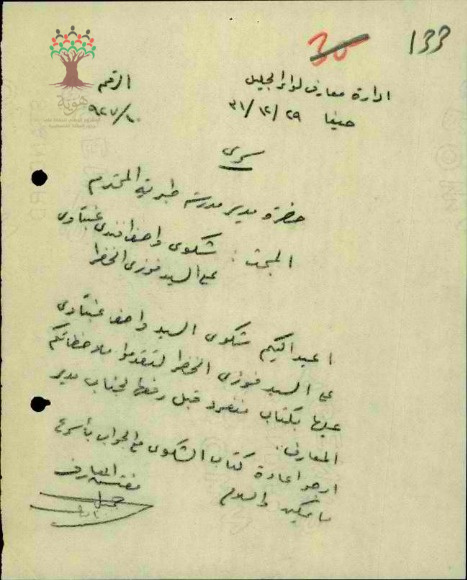 133
30
ادارة معارف لواء الجليل
حيفا ٢٩/١٢/٣١
الرقم
٩٢٧/١٠
هوية
سري
حضرة مدير مدرسة طبريا المحترم
المبحث : شكوى واصف افندي عبتاوي
على السيد فوزي الخضرا
اعيد اليكم شكوى السيد واصف عبتاوي
على السيد فوزي الخضرا لتقدموا ملاحظاتكم
عليها بكتاب منفرد قبل رفعها لجناب مدير
المعارف .
ارجو اعادة كتاب الشكوى مع الجواب بأسرع
ما يمكن والسلام
مفتش المعارف